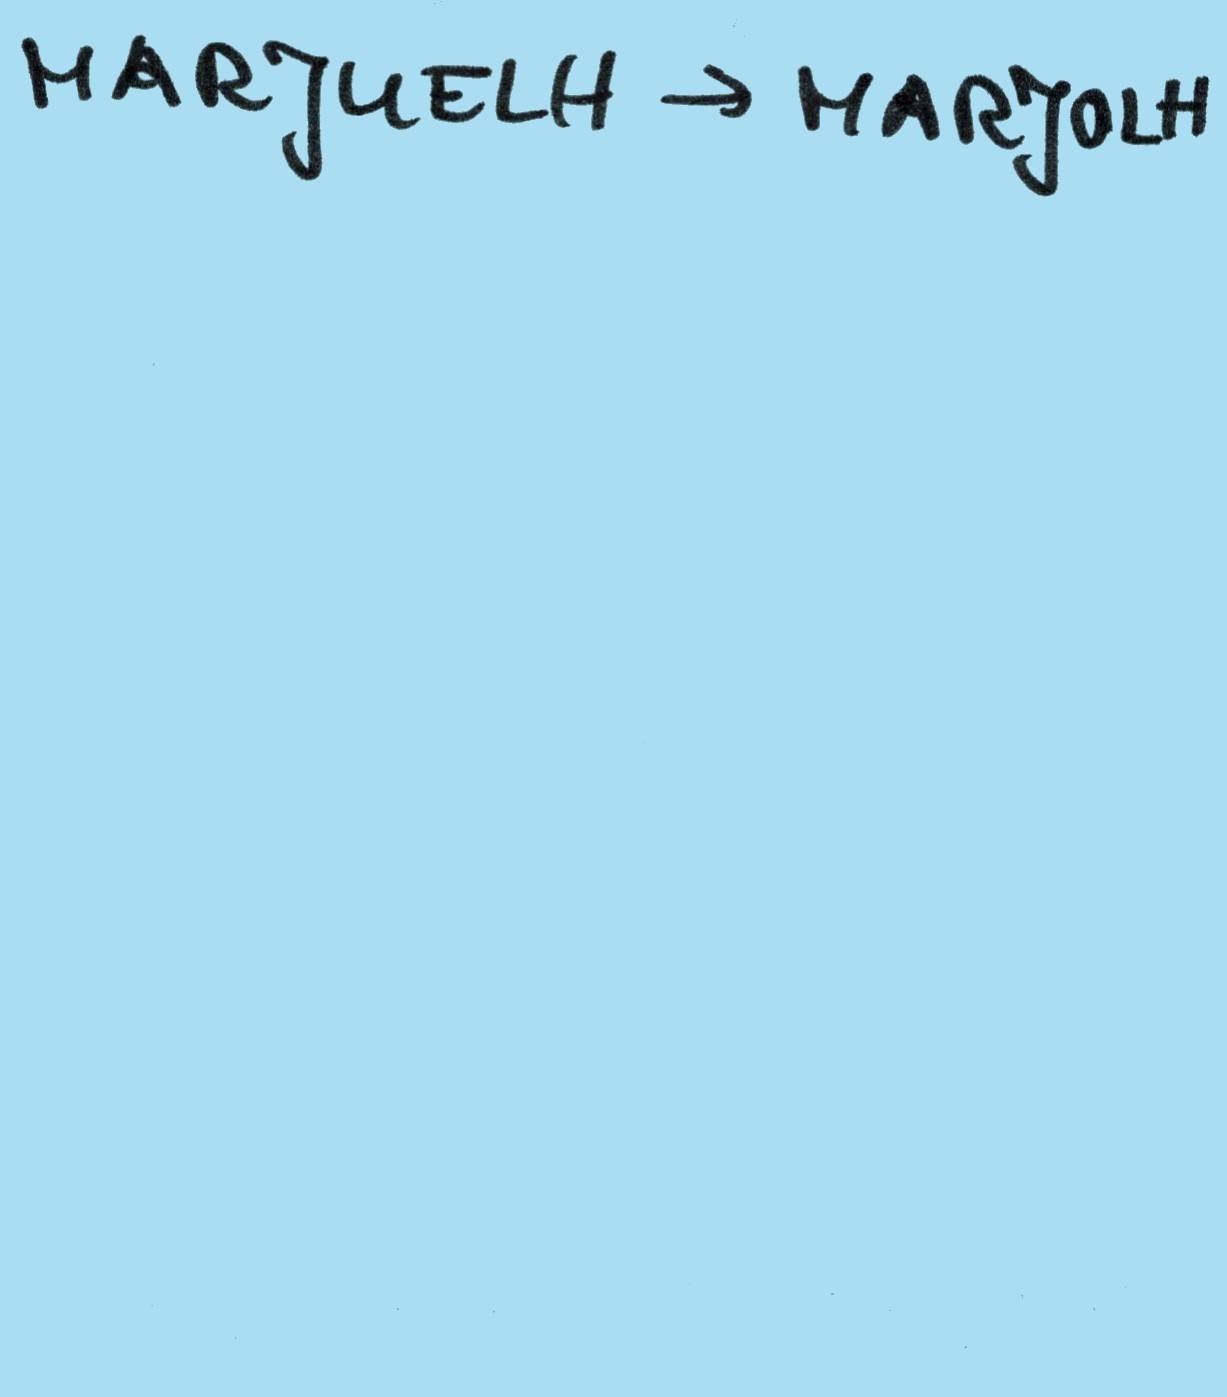 MARJUELH → MARJOLH